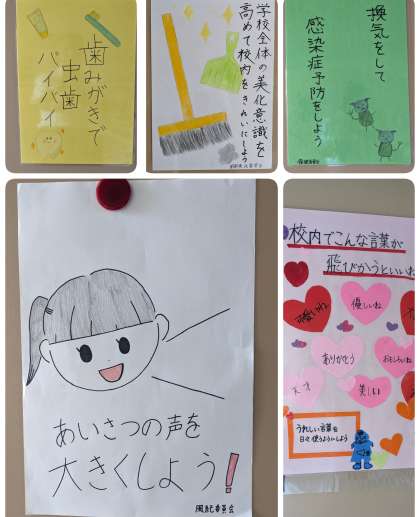 歯みがきで
虫歯
バイバイ
学校全体の美化意識を
高めて校内をきれいにしよう
換気をして
感染症予防をしよう
あいさつの声を
大きくしよう!
風紀委員会
校内でこんな言葉が
飛びかうといいね
可愛いね
優しいね
ありがとう
おもしろいね
天才
美しい
うれしい言葉を
日々使うようにしよう